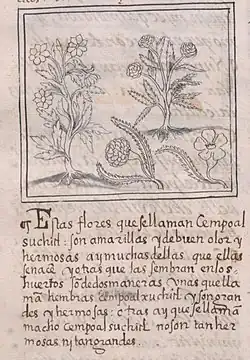 ¶ Estas flores que se llaman Cempoal
suchitl: son amarillas y de buen olor y
hermosas ay muchas dellas que ellas
se nacē y otras que las sembran en los
huertos sō de dos maneras vnas que lla
mā hembras cempoalxuchitl y son gran
des y hermosas: otras ay que se llamā
macho cempoal suchitl no son tan her
mosas ni tan grandes.